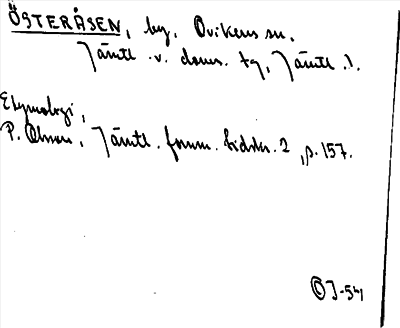 ÖSTERÅSEN, by, Ovikens sn.
Jämtl. v. doms. tg, Jämtl. l.
Etymologi,
P. Olsson, Jämtl. fornm. tidskr. 2, p. 157.
OJ-54